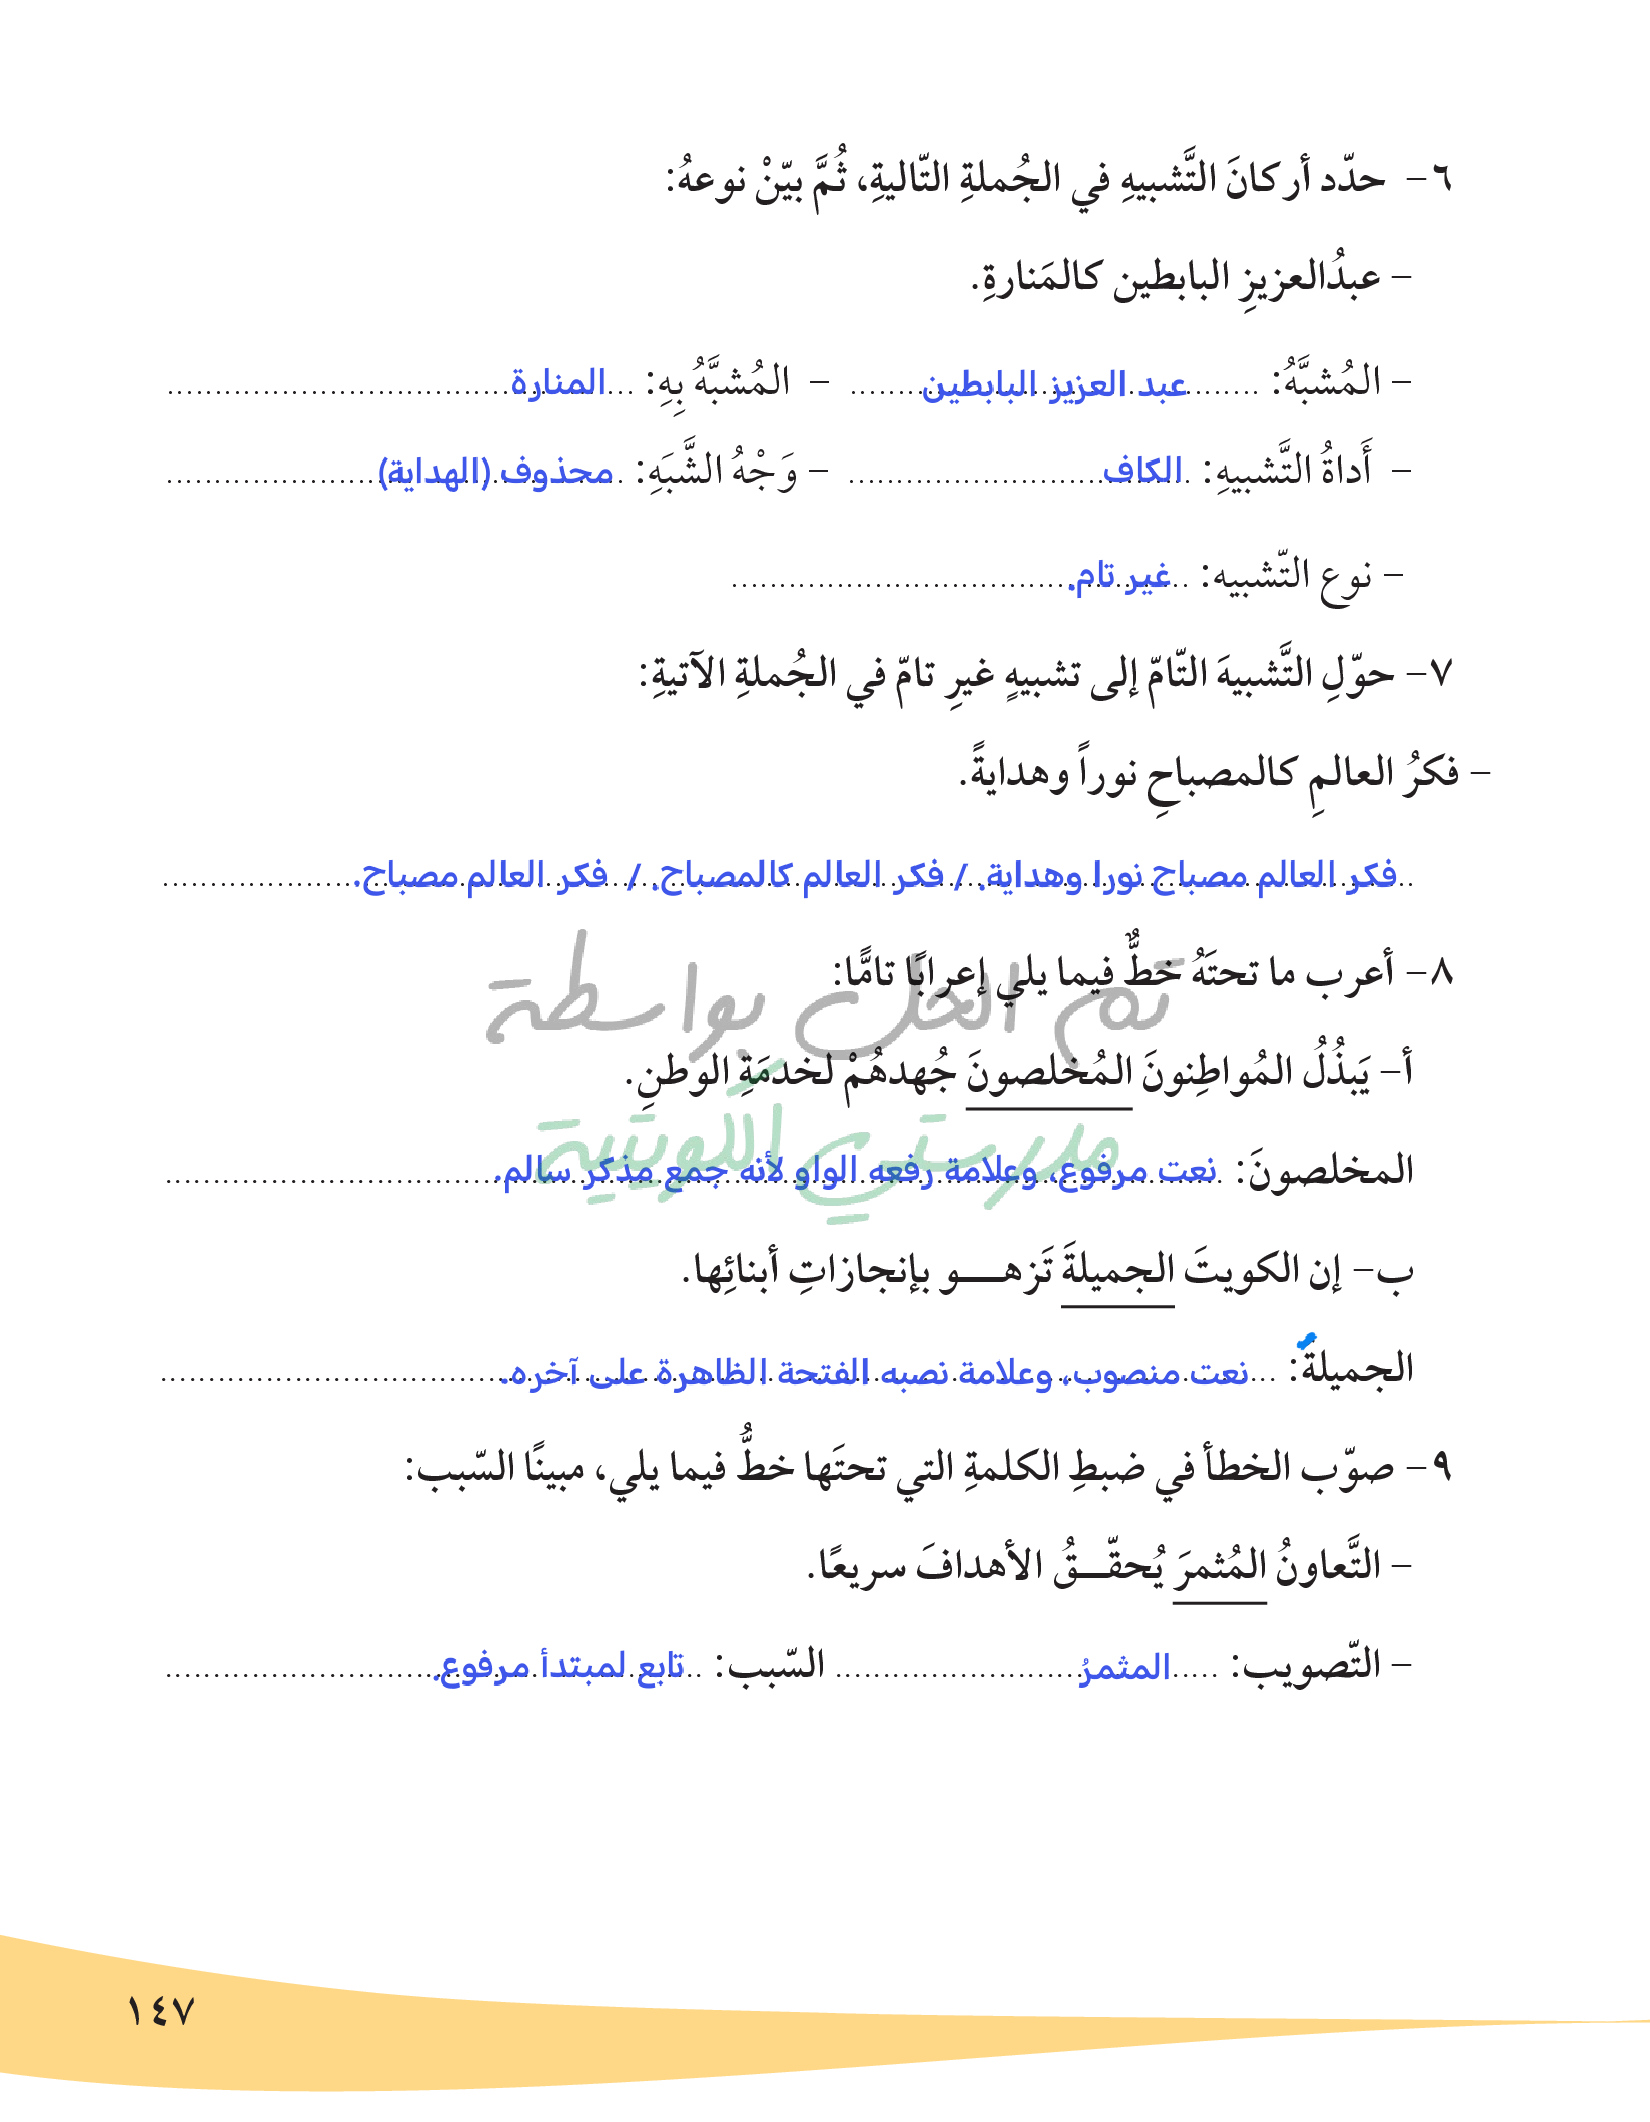 ٦- حدّد أركانَ التَّشبيهِ في الجُملةِ التّاليةِ، ثُمَّ بيّنْ نوعهُ:
– عبدُالعزيزِ البابطين كالمَنارةِ.
– المُشبَّهُ: عبد العزيز البابطين – المُشبَّهُ بِهِ: المنارة
– أَداةُ التَّشبيهِ: الكاف – وَجْهُ الشَّبَهِ: محذوف (الهداية)
– نوع التّشبيه: غير تام.
٧- حوّلِ التَّشبيهَ التّامّ إلى تشبيهٍ غيرِ تامّ في الجُملةِ الآتيةِ:
– فكرُ العالمِ كالمصباحِ نوراً وهدايةً.
فكر العالم مصباح نورا وهداية. / فكر العالم كالمصباح. / فكر العالم مصباح.
٨- أعرب ما تحتَهُ خطٌّ فيما يلي إعرابًا تامًّا:
تم الحل بواسطة
أ- يَبذُلُ المُواطِنونَ المُخلصونَ جُهدهُمْ لخدمَةِ الوطنِ.
مدرستي الكويتية
المخلصونَ: نعت مرفوع، وعلامة رفعه الواو لأنه جمع مذكر سالم.
ب- إن الكويتَ الجميلةَ تَزهـــو بإنجازاتِ أبنائِها.
الجميلةَ: نعت منصوب، وعلامة نصبه الفتحة الظاهرة على آخره.
٩- صوّب الخطأ في ضبطِ الكلمةِ التي تحتَها خطٌّ فيما يلي، مبينًا السّبب:
– التَّعاونُ المُثمرَ يُحقّــقُ الأهدافَ سريعًا.
– التّصويب: المثمرُ السّبب: تابع لمبتدأ مرفوع.
١٤٧